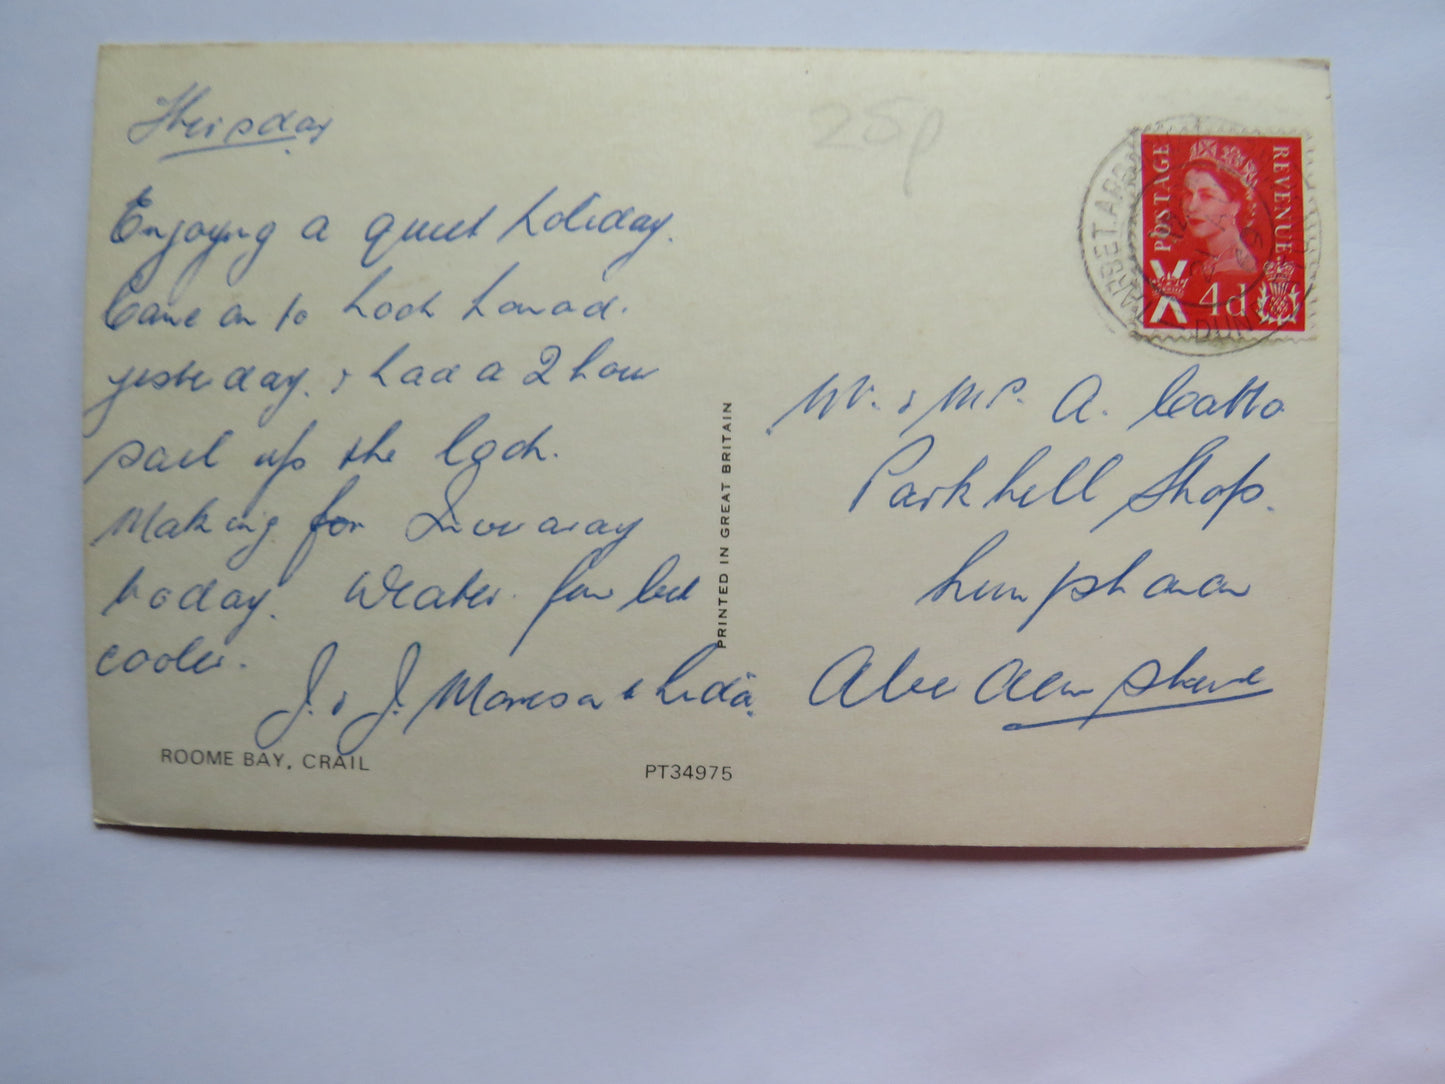 Thursday
25p
Enjoying a quiet holiday.
Came on to Loch Lomond.
yesterday. & had a 2 hour
sail up the Loch.
Making for Inveraray
today. Weather fair but
cooler.
J. & J. Maresa & Linda.
ROOME BAY, CRAIL
PT34975
PRINTED IN GREAT BRITAIN
TARBET. ARR
DUN
POSTAGE
REVENUE
4d
Mr. & Mrs. A. Catto
Parkhill Shop.
Lumphanan
Aberdeenshire